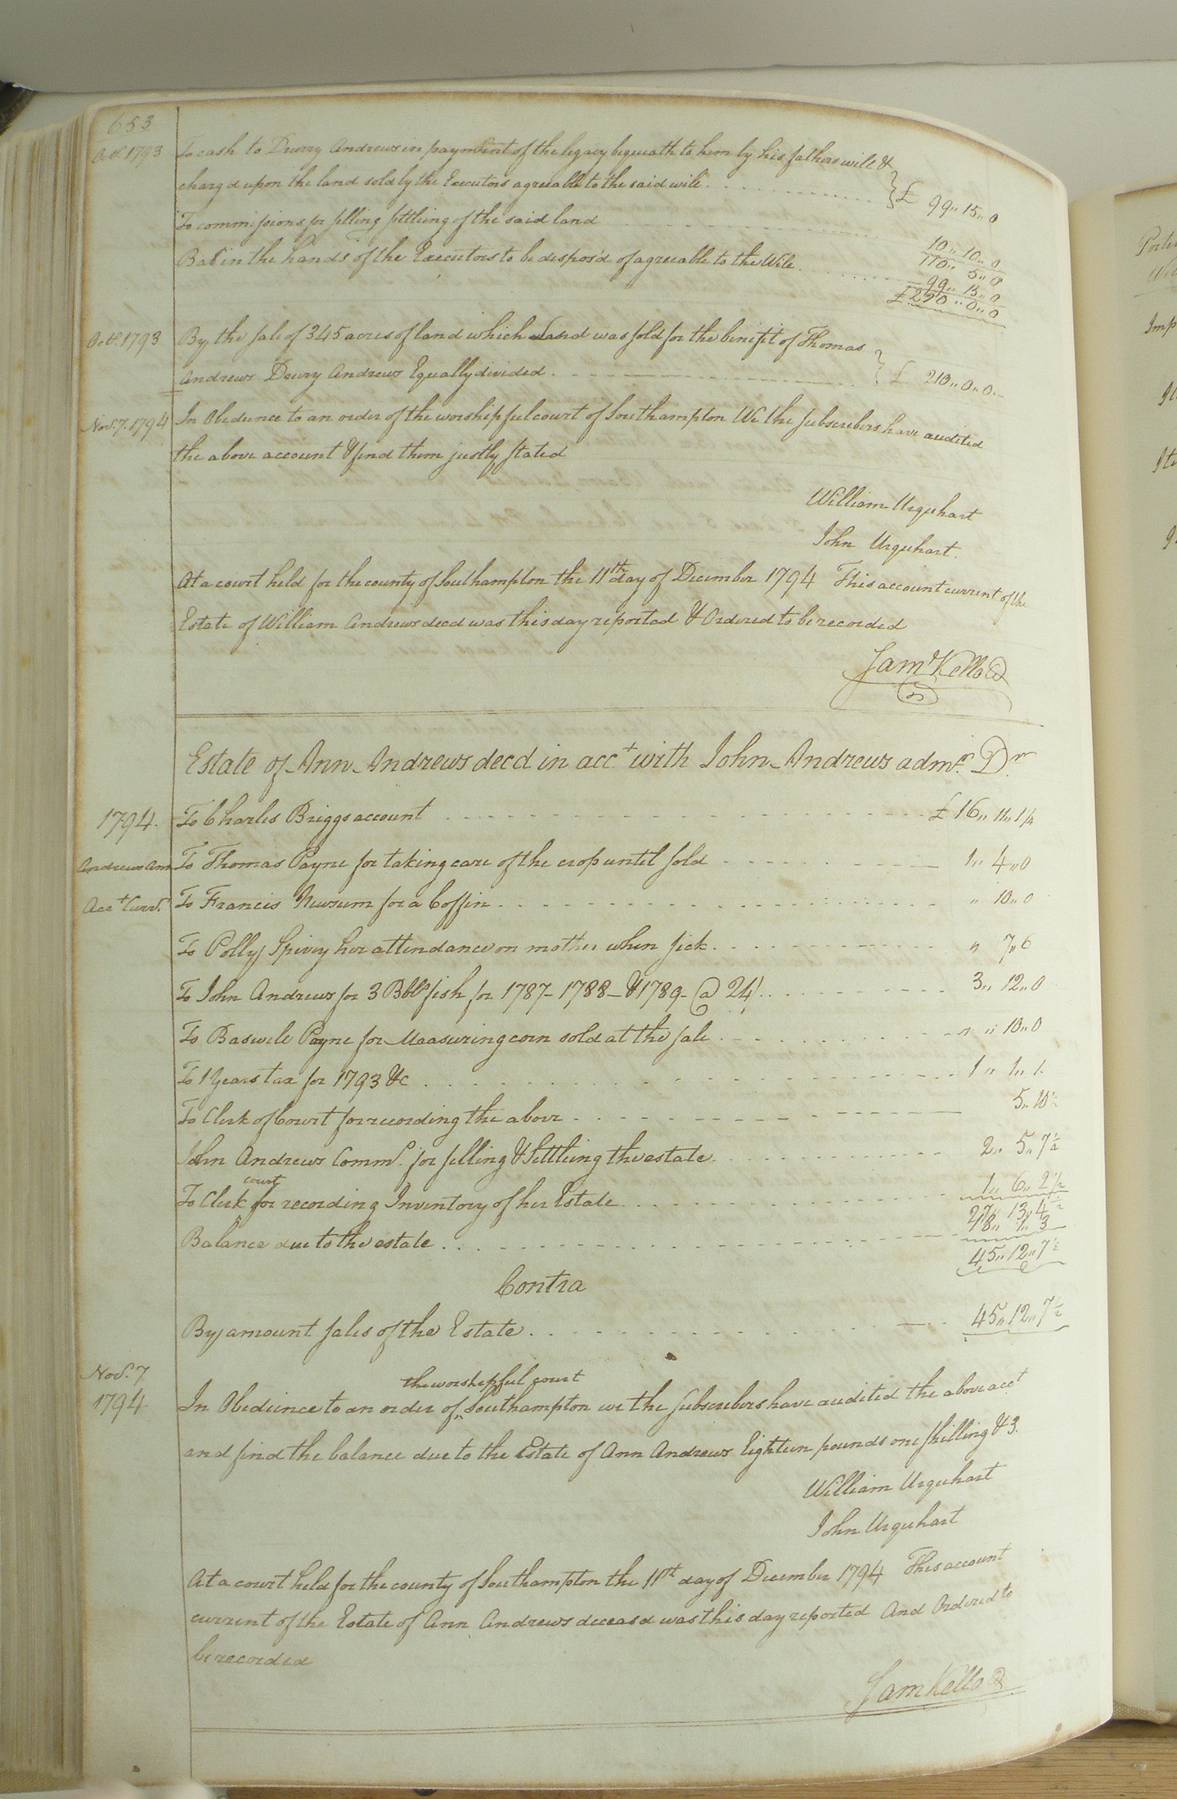 653
Octr. 1793 To cash to Drury Andrews in payment of the legacy bequeath to him by his fathers will &
charg'd upon the land sold by the Executors agreable to the said will £ 99,, 15,, 0
To commissions for selling settling of the said land 10,, 10,, 0
110,, 5,, 0
Bal in the hands of the Executors to be dispos'd of agreable to the Will 99,, 15,, 0
£ 210,, 0,, 0
Octr. 1793 By the sale of 345 acres of land which Land was sold for the benifit of Thomas
Andrews Drury Andrews Equally divided £ 210,, 0,, 0
Novr. 7. 1794 In Obedience to an order of the worshipful court of Southampton We the Subscribers have audited
the above account & find them justly stated
William Urquhart
John Urquhart
At a court held for the county of Southampton the 11th day of December 1794 This account current of the
Estate of William Andrews decd was this day reported & Ordered to be recorded
Saml Kello
Estate of Ann Andrews decd in acct with John Andrews admr. Dr
1794. To Charles Briggs account £ 16,, 11,, 1¼
Andrews Ann To Thomas Payne for taking care of the crop until sold 1,, 4,, 0
Acct Curr. To Francis Nusum for a Coffin ,, 10,, 0
To Polly Spivey her attendance on mother when sick ,, 7,, 6
To John Andrews for 3 Bbls fish for 1787- 1788- & 1789- @ 24/. 3,, 12,, 0
To Baswell Payne for Measuring corn sold at the sale ,, 10,, 0
To 1 Years tax for 1793 &c 1,, 1,, 1
To Clerk of Court for recording the above 5,, 10½
John Andrews Comms. for selling & Settling the estate 2,, 5,, 7½
To Clerk court for recording Inventory of her Estate 1,, 6,, 2½
27,, 13,, 4½
Balance due to the estate 18,, 1,, 3
45,, 12,, 7½
Contra
By amount sales of the Estate 45,, 12,, 7½
Novr. 7
1794 In Obedience to an order of the worshipful court Southampton we the Subscribers have audited the above acct
and find the balance due to the Estate of Ann Andrews Eighteen pounds one shilling & 3.
William Urquhart
John Urquhart
At a court held for the county of Southampton the 11th day of December 1794 This account
current of the Estate of Ann Andrews deceasd was this day reported And Ordered to
be recorded
Sam Kello